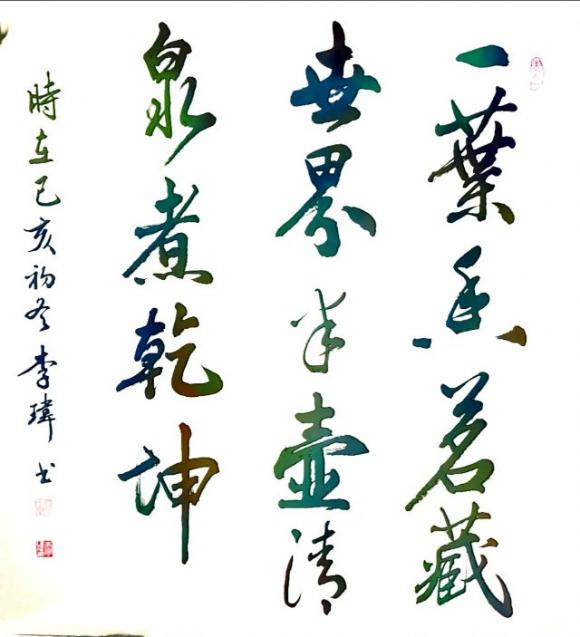 一葉香茗藏
世界半壺清
泉煮乾坤
時在己亥初冬李瑋书